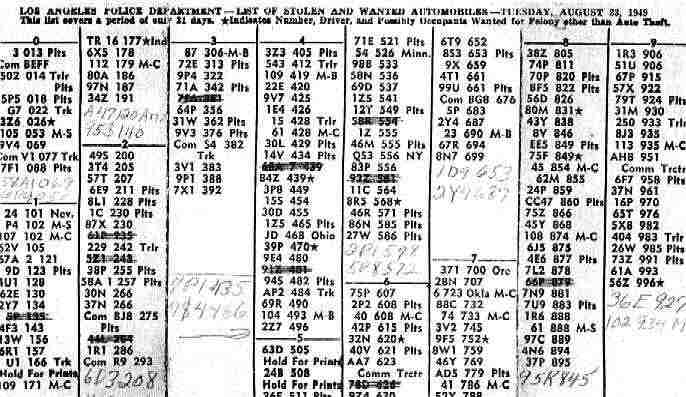 LOS ANGELES POLICE DEPARTMENT—LIST OF STOLEN AND WANTED AUTOMOBILES—TUESDAY, AUGUST 23, 1949
This list covers a period of our 21 days. ★Indicates Number, Driver, and Possibly Occupants Wanted for Felony other than Auto Theft.
0
3 013 Plts
Com BEFF
502 014 Trlr
Plts
5P5 018 Plts
G7 022
3Z6 026★
105 053 M-S
9V4 069
Com V1 077 Trk
7F1 088 Plts
1
24 101 Nev.
P4 102 M-S
107 102 M-C
52V 105
57A 2 121
9D 123 Plts
4U1 128
62E 130
2Y7 134
4F3 143
13W 156
6R1 157
U1 166 Trk
109 171 M-C
TR 16 177★Ind
6X5 178
112 179 M-C
80A 186
97N 187
34Z 191
2
49S 200
3Y4 205
57T 207
6E9 211 Plts
8L1 228 Plts
1C 230 Plts
87X 230
229 242 Trlr
38P 255 Plts
58A 1 257 Plts
30N 266
37N 266
Com BJ8 275
Plts
1R1 286
Com R9 293
6U3208
3
87 306-M-B
72E 313 Plts
9P4 322
71A 342 Plts
64P 356
31W 362 Plts
9V3 376 Plts
Com S4 382
Trk
3V1 383
9P1 388
7X1 392
4
3Z3 405 Plts
543 412 Trlr
109 419 M-B
22E 420
9V7 425
1E4 426
15 428 Trlr
61 428 M-C
30L 429 Plts
14V 434 Plts
84Z 439★
3P8 449
15S 454
30D 455
1Z5 465 Plts
JD 468 Ohio
39P 470★
9E4 480
94S 482 Plts
AP2 484 Trk
69R 490
104 493 M-B
2Z7 496
5
63D 505
Hold For Prints
24B 508
Hold For Prints
26E 511 Plts
71E 521 Plts
54 526 Minn.
98B 533
58N 536
69D 537
1Z5 541
12Y 549 Plts
1Z 555
46M 555 Plts
Q53 556 NY
83P 556
11C 564
8R5 568★
46R 571 Plts
86N 585 Plts
27W 586 Plts
6
75P 607
2P2 608 Plts
40 608 M-C
42P 615 Plts
32N 620★
40V 621 Plts
AA7 623
Comm Trctr
9Z4 630
6T9 652
8S3 653 Plts
9X 659
4T1 661
99U 661 Plts
Com BG8 676
5P 683
2Y4 687
23 690 M-B
67R 694
8N7 699
1D9 653
2Y4687
7
371 700 Ore
28N 707
6 723 Okla M-C
74 733 M-C
3V2 745
9F5 752★
8W1 759
46Y 769
AD5 779 Plts
41 786 M-C
52Y 788
8
38Z 805
74P 811
70P 820 Plts
8F5 822 Plts
56D 826
80M 831★
43Y 838
8V 846
EE5 849 Plts
75F 849★
45 854 M-C
62M 855
24P 859
CC47 860 Plts
75Z 866
45Y 868
108 874 M-C
6J5 875
4E6 877 Plts
7L2 878
7N9 881
7U9 883 Plts
1R6 888
61 888 M-S
97C 889
4N6 894
37P 895
95K845
9
1R3 906
51U 906
67P 915
57X 922
79T 924 Plts
31M 930
250 933 Trlr
8J3 935
113 935 M-C
AH8 951
Comm Trctr
6F7 958 Plts
37N 961
16P 970
65T 976
5X8 982
404 983 Trlr
26W 985 Plts
73D 991 Plts
61A 993
56Z 996★